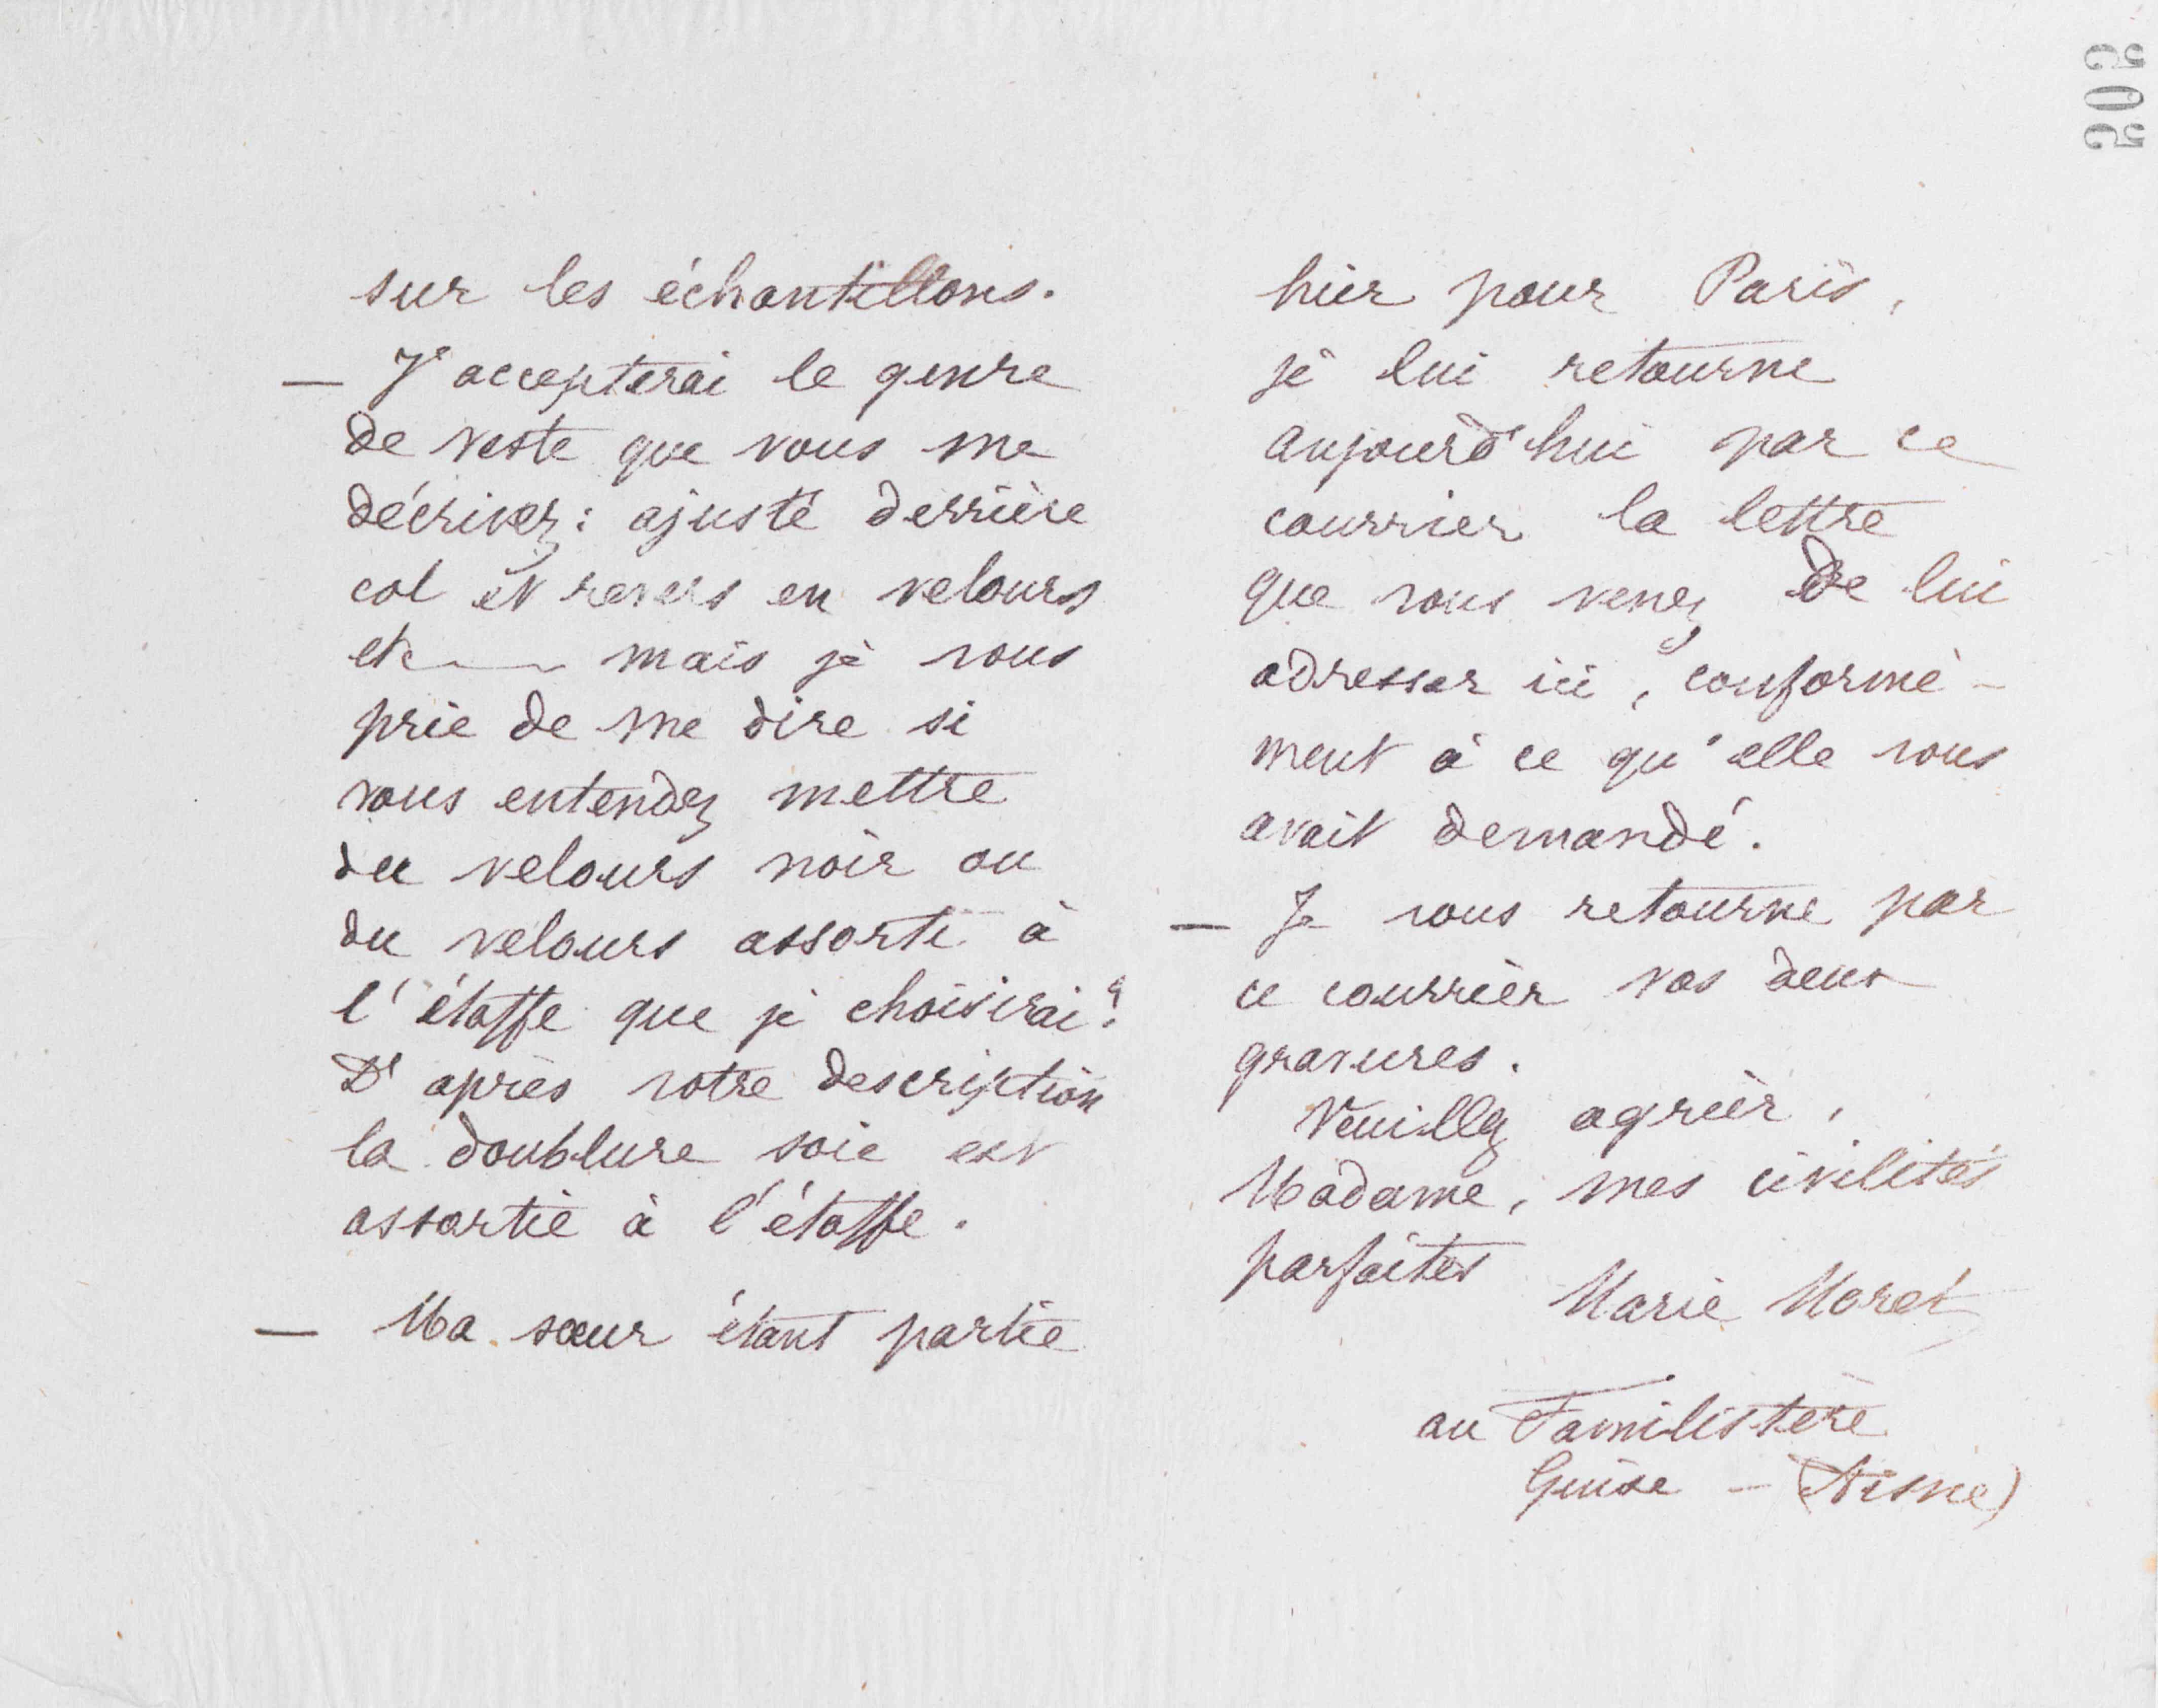 505
sur les échantillons.
— J'accepterai le genre
de veste que vous me
décrivez : ajusté derrière
col et revers en velours
etc mais je vous
prie de me dire si
vous entendez mettre
du velours noir ou
du velours assorti à
l'étoffe que je choisirai ?
D'après votre description
la doublure soie est
assortie à l'étoffe.
— Ma sœur étant partie
hier pour Paris,
je lui retourne
aujourd'hui par ce
courrier la lettre
que vous venez de lui
adresser ici, conformé-
ment à ce qu'elle vous
avait demandé.
— Je vous retourne par
ce courrier vos deux
gravures.
Veuillez agréer,
Madame, mes civilités
parfaites
Marie Moret
au Familistère
Guise — (Aisne)